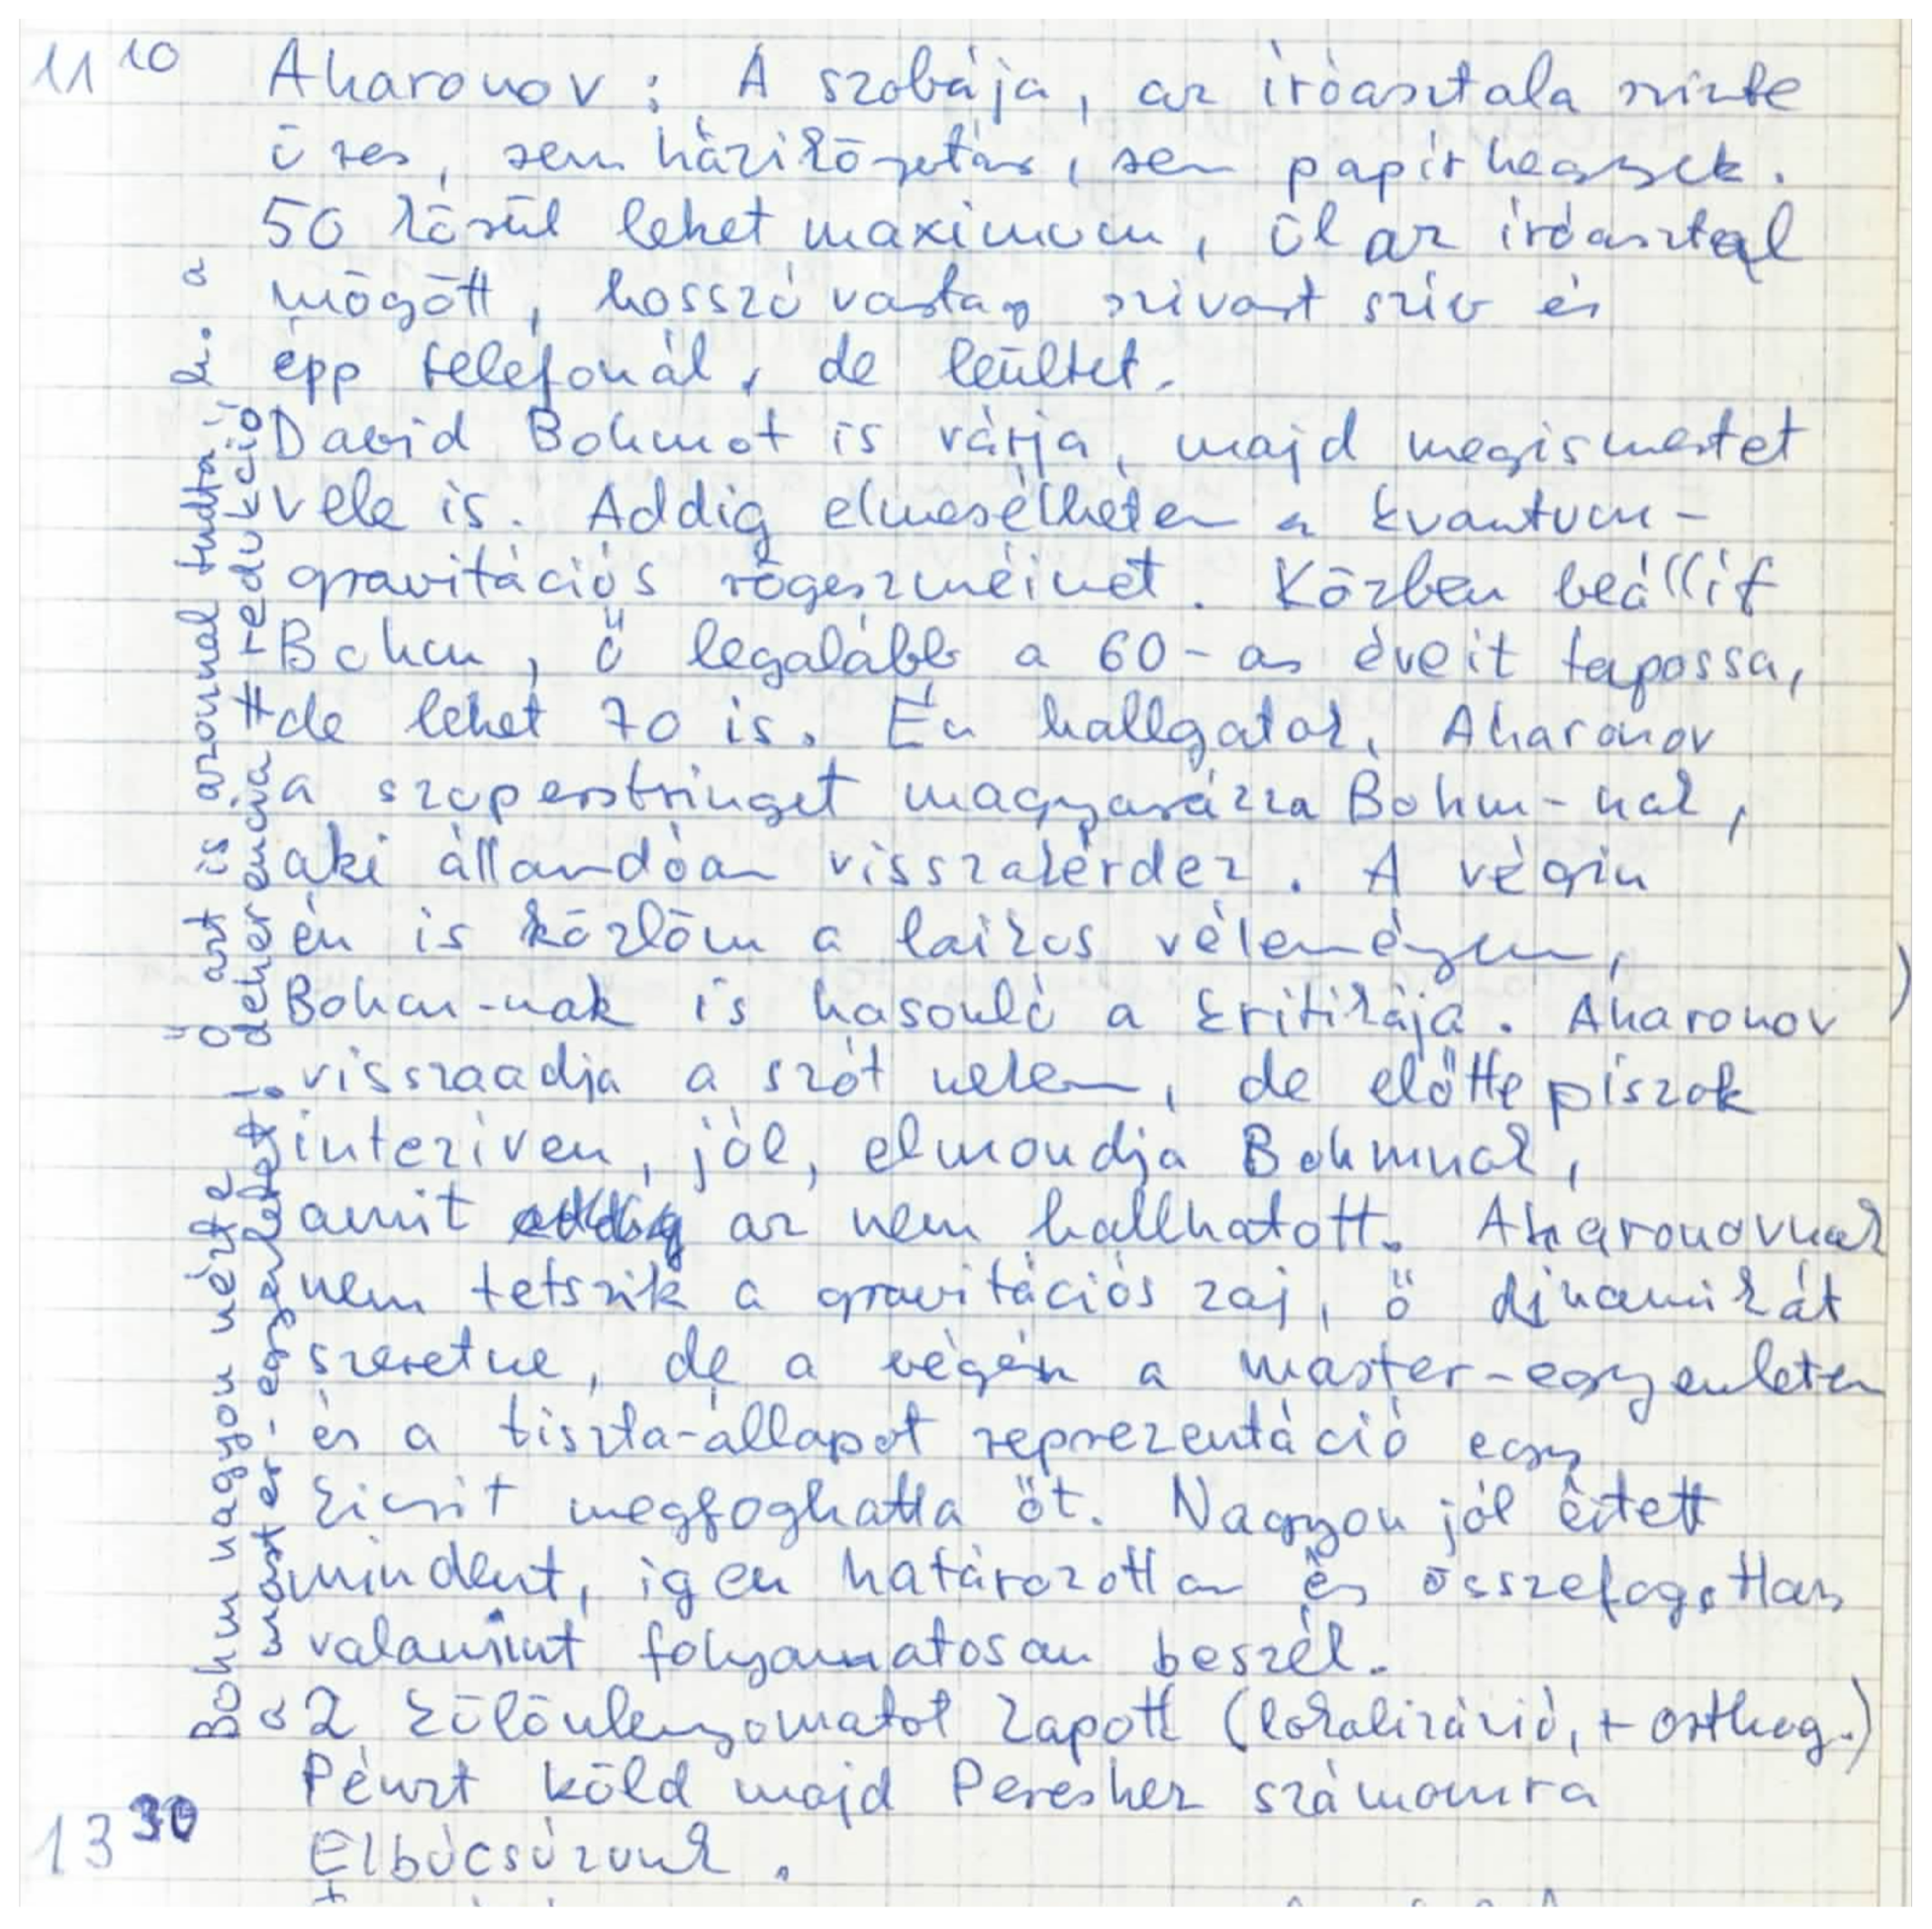 11 10 Aharonov: A szobája, az íróasztala szinte
üres, sem házikönyvtár, sem papírhegyek.
50 körül lehet maximum, ül az íróasztal
mögött, hosszú vastag szivart szív és
épp telefonál, de leültet.
David Bohmot is várja, majd megismertet
vele is. Addig elmesélhetem a kvantum-
gravitációs rögeszméimet. Közben beállít
Bohm, ő legalább a 60-as éveit tapossa,
de lehet 70 is. Én hallgatok, Aharonov
a szuperstringet magyarázza Bohm-nak,
aki állandóan visszakérdez. A végén
én is közlöm a laikus véleményem,
Bohm-nak is hasonló a kritikája. Aharonov
visszaadja a szót nekem, de előtte piszok
inteziven, jól, elmondja Bohmnak,
amit az nem hallhatott. Aharonovnak
nem tetszik a gravitációs zaj, ő dinamikát
szeretne, de a végén a master-egyenletem
és a tiszta-állapot reprezentáció egy
kicsit megfoghatta őt. Nagyon jól értett
mindent, igen határozottan és összefogottan
valamint folyamatosan beszél.
2 különlenyomatot kapott (lokalizáció, + orthog.)
Pénzt küld majd Pereshez számomra
13 30 Elbúcsúzunk.
Bohm nagyon nézte
a master-egyenletet!
Ő azt is azonnal tudta, h. a
dekoherencia ≠ redukció